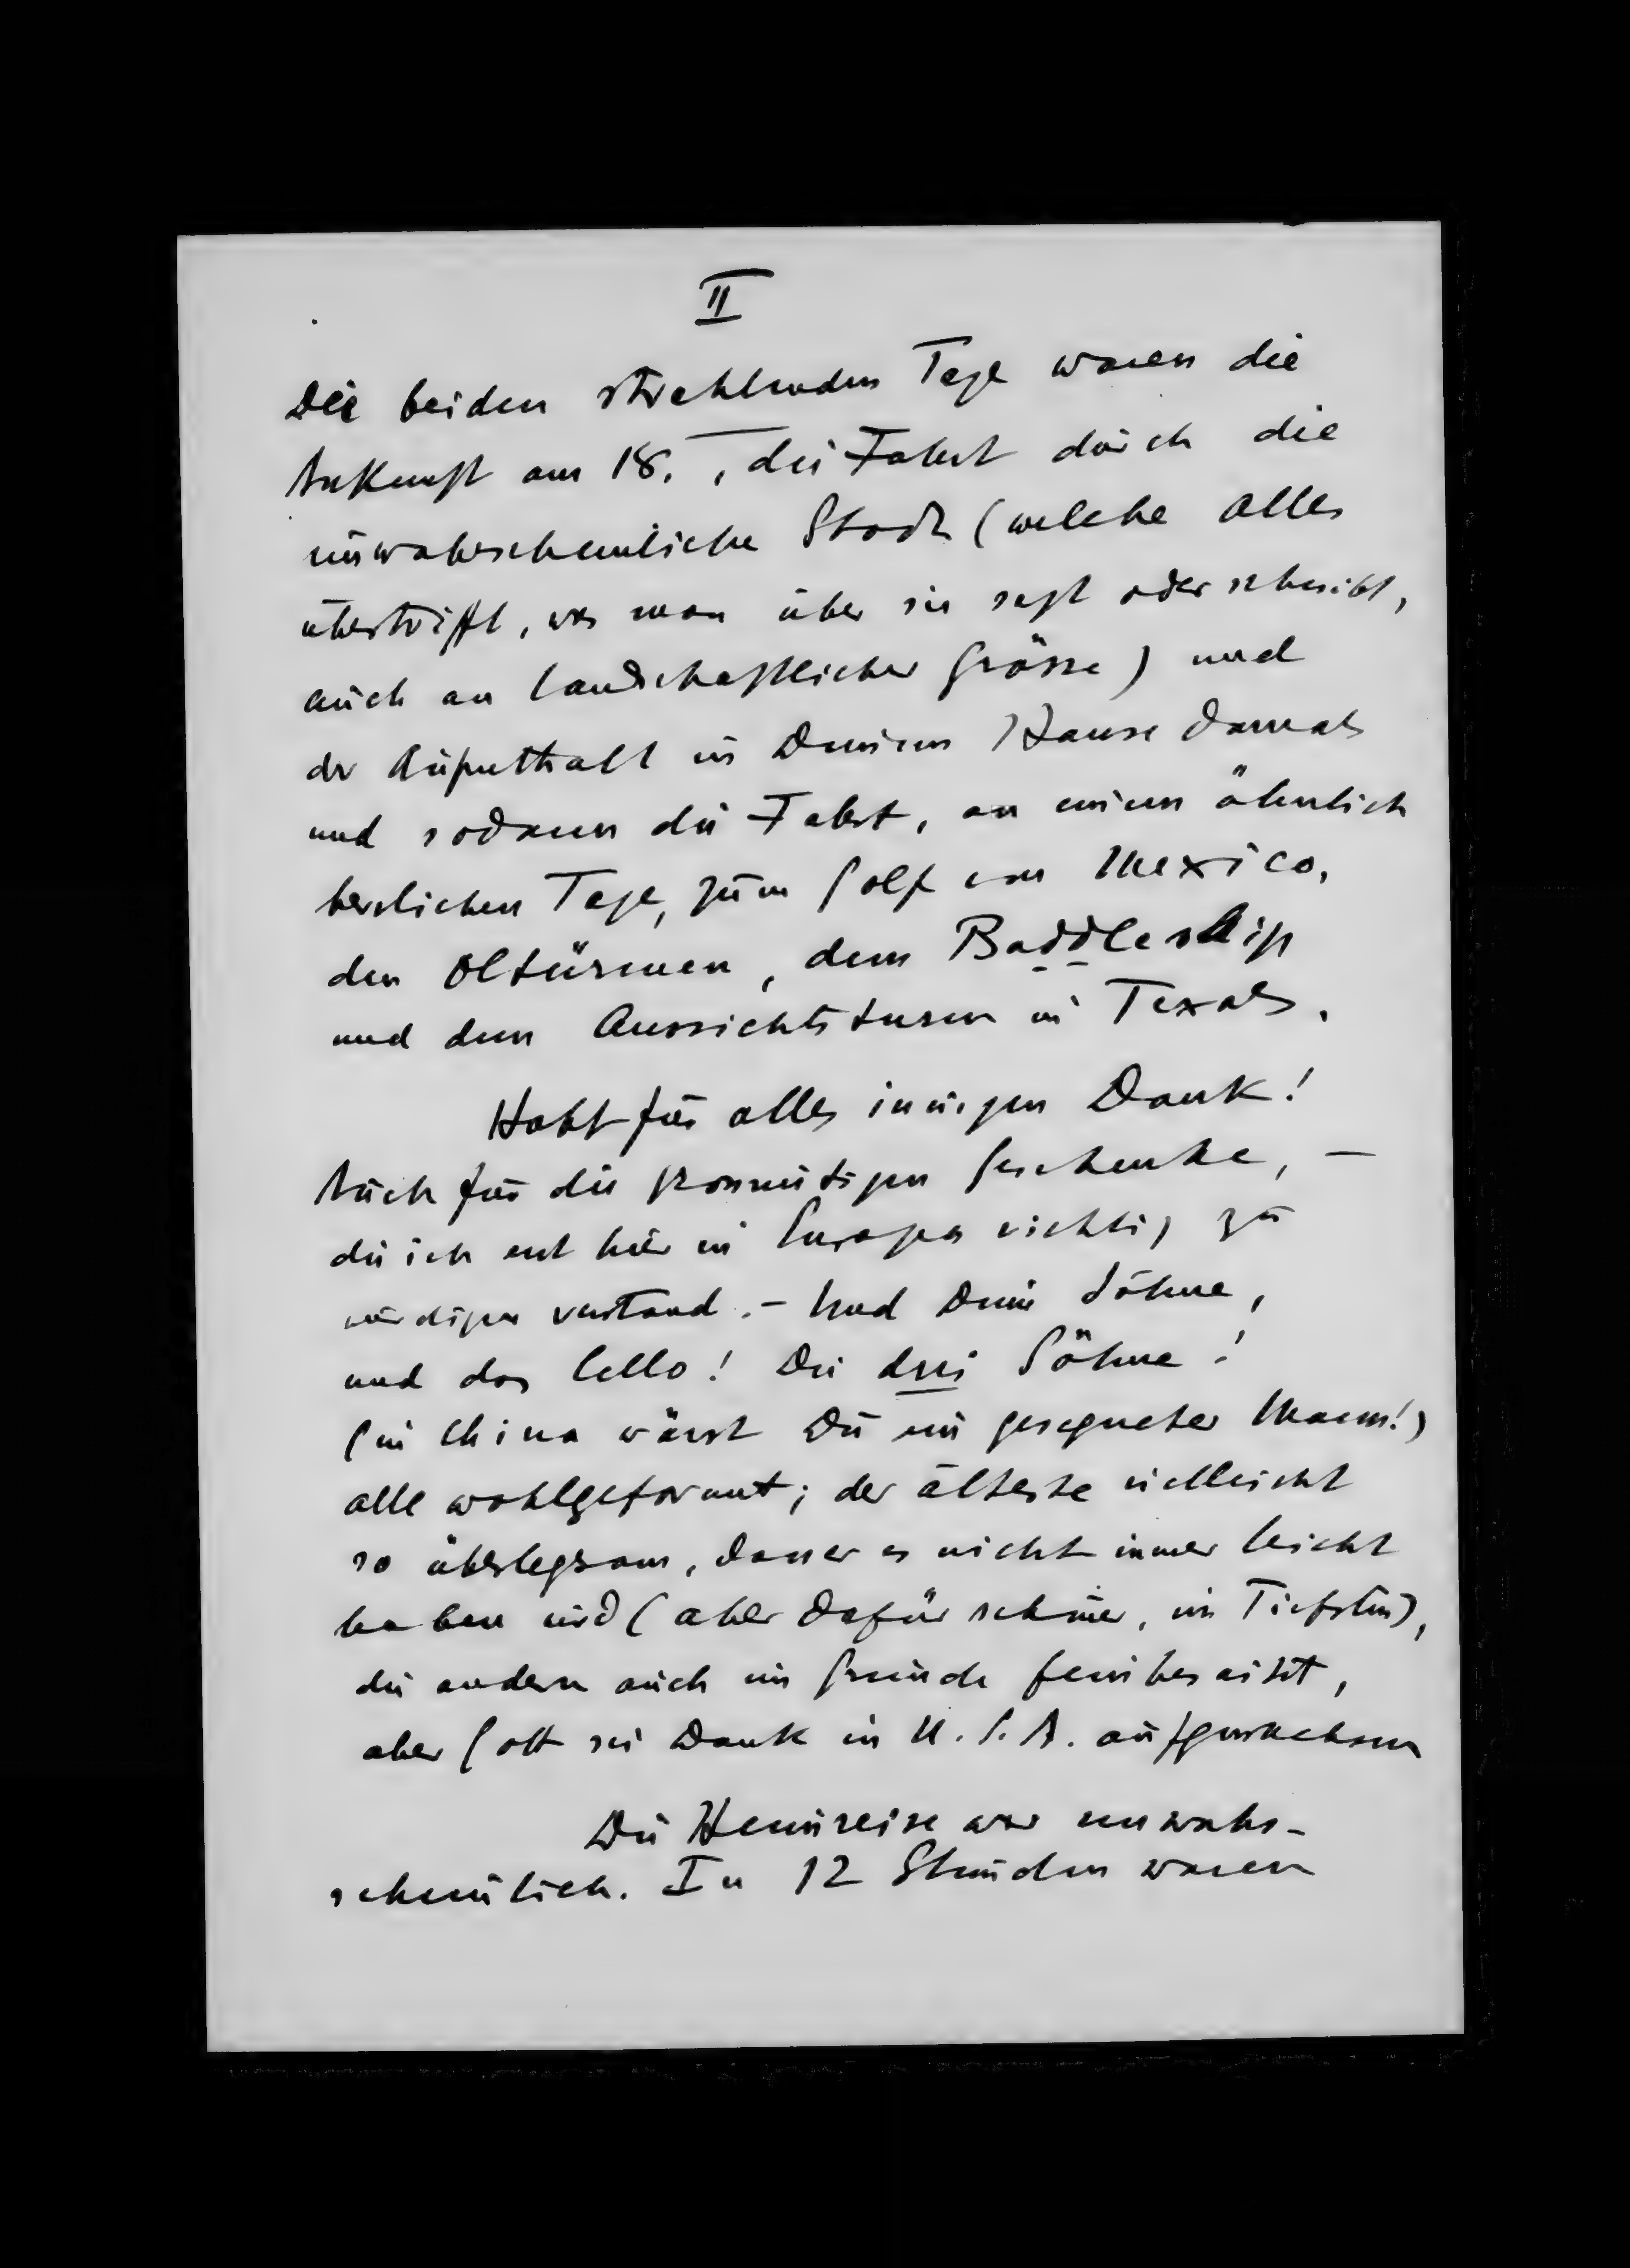 II
Die beiden strahlenden Tage waren die
Ankunft am 18., die Fahrt durch die
unwahrscheinliche Stadt (welche alles
übertrifft, was man über sie sagt oder schreibt,
auch an landschaftlicher Grösse) und
der Aufenthalt in Deinem Hause damals
und sodann die Fahrt, an einem ähnlich
herrlichen Tage, zum Golf von Mexico,
den Öltürmen, dem Baddleship
und dem Aussichtsturm in Texas.
Habt für alles innigen Dank!
Auch für die grossmütigen Geschenke, —
die ich erst hier in Europa richtig zu
würdigen verstand. – Und Deine Söhne,
und das Cello! Die drei Söhne!
(in China wärst Du ein gesegneter Mann!)
alle wohlgeformt; der älteste vielleicht
so überlegsam, dass er es nicht immer leicht
haben wird (aber dafür schöner, im Tiefsten),
die andern auch im Grunde feinbesaitet,
aber Gott sei Dank in U.S.A. aufgewachsen
Die Heimreise war unwahr-
scheinlich. In 12 Stunden waren